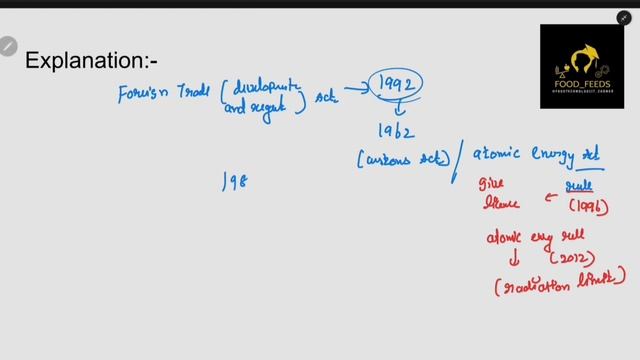 Explanation:-
Foreign Trade (development and regult) act → 1992
1962
(customs act) / atomic energy act
give licence ← rule (1996)
atomic enrgy rule (2012)
(radiation limit)
198
FOOD_FEEDS